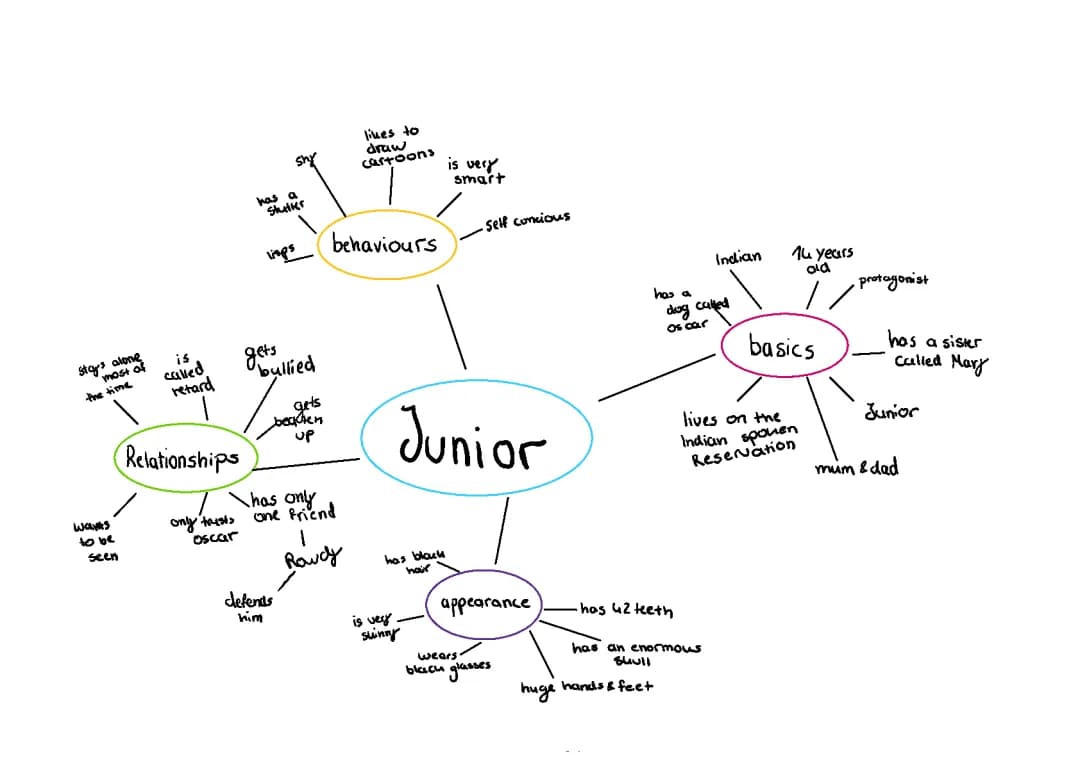 likes to
draw
cartoons
shy
is very
smart
has a
stutter
self concious
behaviours
lisps
Indian
14 years
old
protagonist
has a
dog called
oscar
basics
has a sister
called Mary
lives on the
Indian spoken
Reservation
Junior
mum & dad
stays alone
most of
the time
is
called
retard
gets
bullied
gets
beaten
up
Relationships
Junior
wants
to be
seen
only trusts
oscar
has only
one friend
Rowdy
defends
him
has black
hair
appearance
is very
skinny
wears
black glasses
has 42 teeth
has an enormous
skull
huge hands & feet